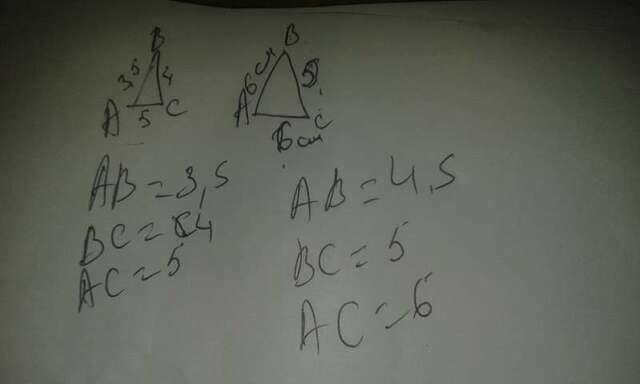 B
3,5 4
A 5 C
B
6 см 5
A C
6 см
AB = 3,5
BC = 4
AC = 5
AB = 4,5
BC = 5
AC = 6